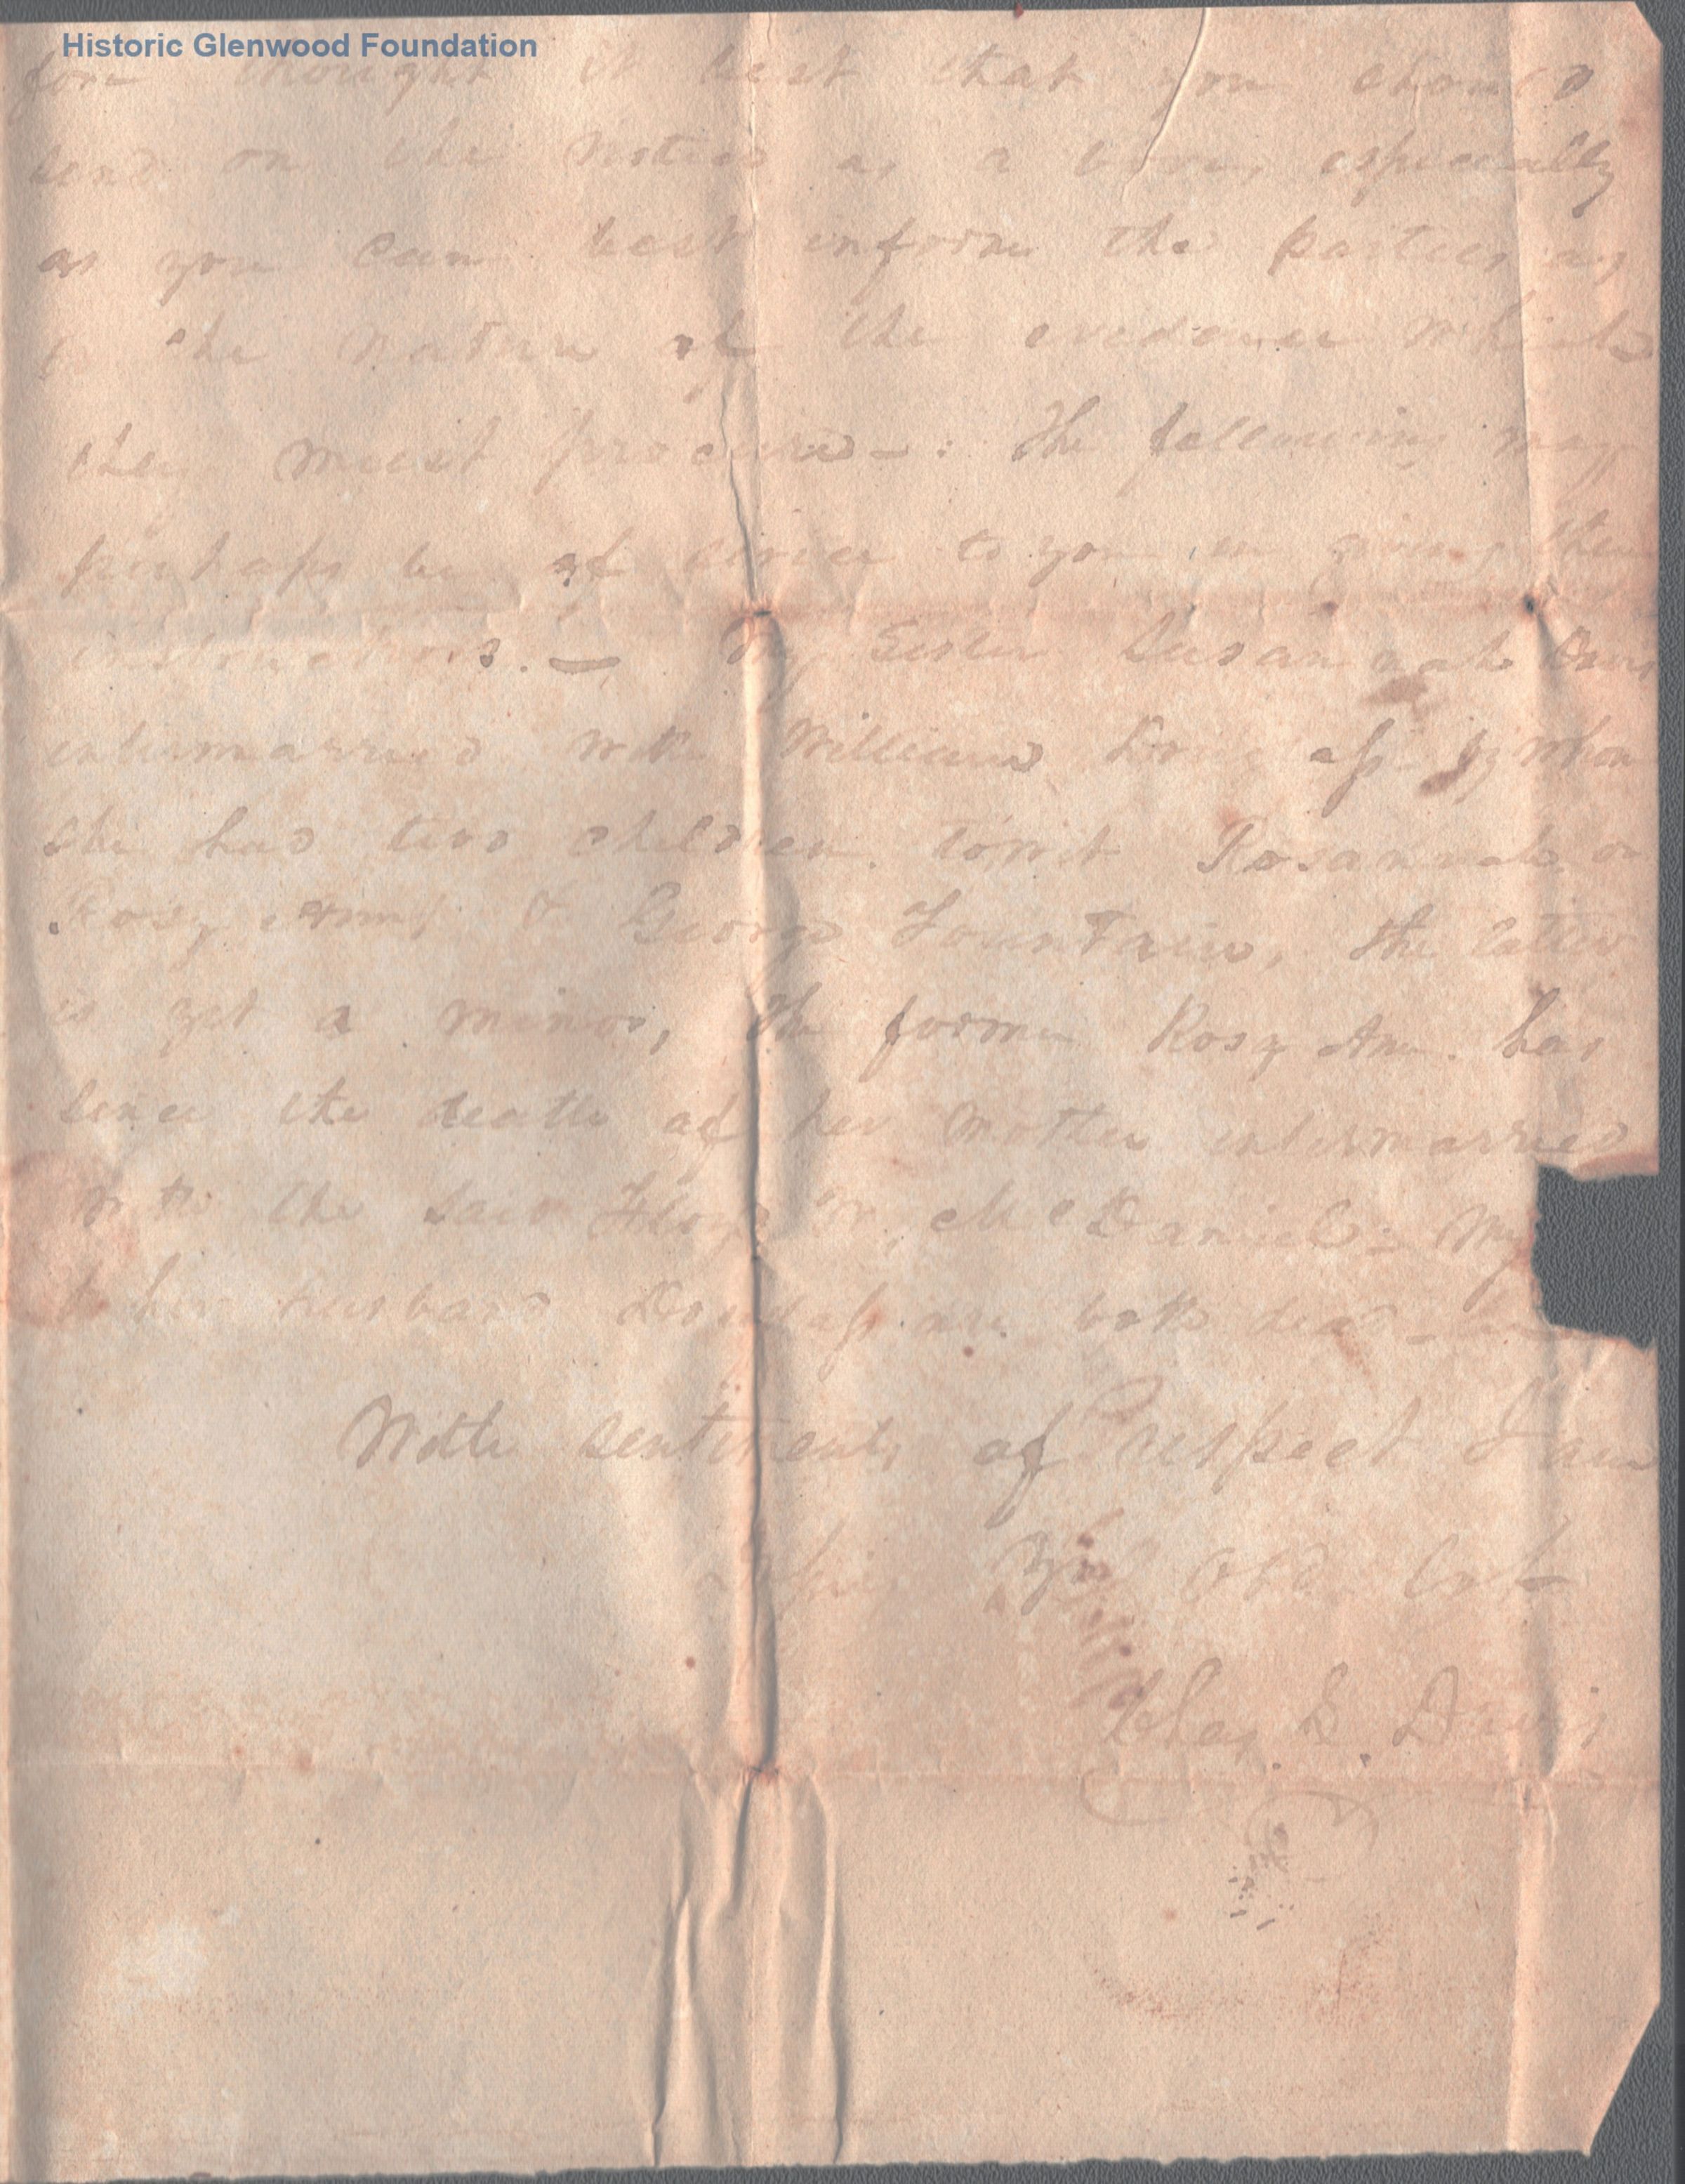 Historic Glenwood Foundation
fore thought it best that you should
send on the notices as above, especially
as you can best inform the parties as
to the nature of the evidence which
they must procure—: The following may
perhaps be of service to you in giving them
instructions. — My Sister Susannah Davis
intermarried with William by whom
she had two children towit Rosannah or
Rosy Ann, & George Fountain, the latter
is yet a minor, the former Rosy Ann has
since the death of her mother intermarried
with the said Floyd McDaniel; My
husband are both dead
With sentiments of respect I am
Yr Obd. Svt
Chas. L. Davis